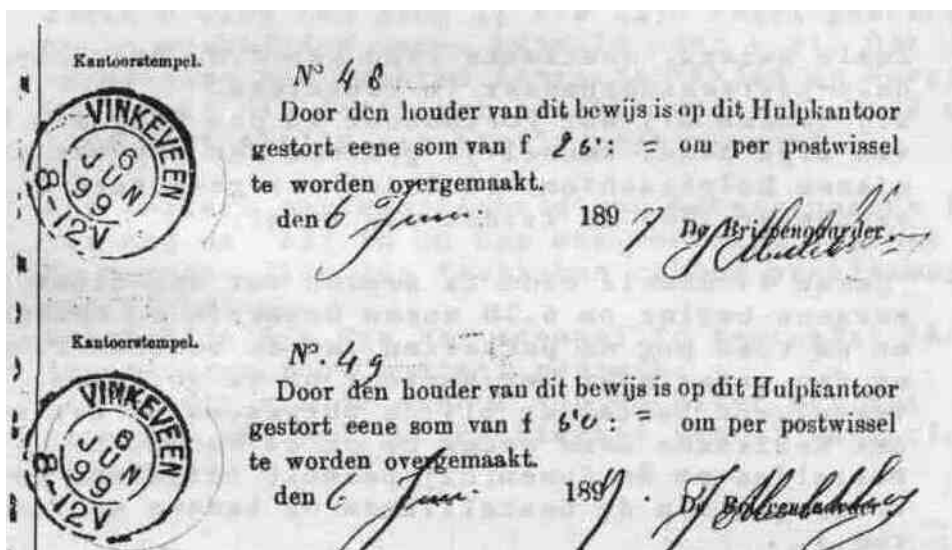 Kantoorstempel.
VINKEVEEN
6 JUN 99
8-12V
No 48
Door den houder van dit bewijs is op dit Hulpkantoor
gestort eene som van f 25 : = om per postwissel
te worden overgemaakt.
den 6 Juni 189
De Brievengaarder.
Kantoorstempel.
VINKEVEEN
6 JUN 99
8-12V
No. 49
Door den houder van dit bewijs is op dit Hulpkantoor
gestort eene som van f : = om per postwissel
te worden overgemaakt.
den 6 Juni 189
De Brievengaarder.